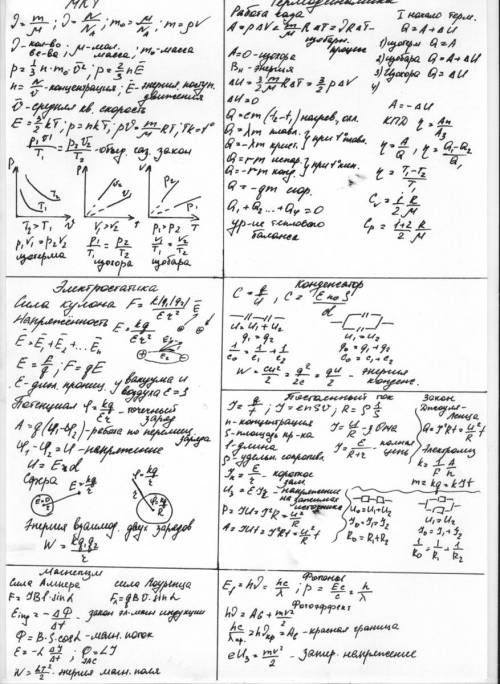 МКТ
ϑ = m/μ; ϑ = N/N_A; m₀ = μ/N_A; m = ρV
ϑ - кол-во в-ва μ - мол. масса; m₀ - масса
p = 1/3 n·m₀ v̄²; p = 2/3 nE
n = N/V - концентрация; E - энергия поступ. движения
v̄ - средняя кв. скорость
E = 3/2 kT; p = nkT; pV = m/μ RT; TK = t°
p₁V₁/T₁ = p₂V₂/T₂ - объед. газ. закон
P P V
T₁ T₂ V₂ V₁ P₂ P₁
V T T
T₂ > T₁ V₁ > V₂ P₁ > P₂
p₁V₁ = p₂V₂ P₁/T₁ = P₂/T₂ V₁/T₁ = V₂/T₂
изотерма изохора изобара
Термодинамика
Работа газа
A = pΔV = m/μ RΔT = ϑRΔT - изобарн. процесс
A = 0 - изохора
Вн - энергия
ΔU = 3/2 m/μ RΔT = 3/2 pΔV
ΔU = 0
Q = cm(t₂ - t₁) нагрев, охл.
Q = λm плавл.
Q = -λm крист. } при t° плавл.
Q = rm испар.
Q = -rm конд. } при t° кип.
Q = -qm сгор.
Q₁ + Q₂ ... + Q₄ = 0
ур-ие теплового баланса
I начало терм.
Q = A + ΔU
1) изотерм Q = A
2) изобара Q = A + ΔU
3) Изохора Q = ΔU
4)
A = -ΔU
КПД η = Aп/Aз
η = A/Q, η = Q₁-Q₂/Q₁
η = T₁-T₂/T₁
Cv = i/2 R/M
Cp = i+2/2 R/M
Электростатика
Сила кулона F = k|q₁||q₂|/Er²
Напряжённость E = kq/Er²
Ē = Ē₁ + Ē₂ ... Ēn
E = F/q; F = qE
E - диэл. прониц. у вакуума и воздуха E = 1
Потенциал φ = kq/Er - точечный заряд
A = q(φ₁ - φ₂) - работа по перемещ. заряда
φ₁ - φ₂ = U - напряжение
U = E×d
Сфера E = kq/r φ = kq/r
E = 0
Энергия взаимод. двух зарядов
W = kq₁q₂/r
Конденсатор
C = q/U, C = EE₀S/d
U₀ = U₁ + U₂ U₁ = U₂
q₁ = q₂ q₀ = q₁ + q₂
1/C₀ = 1/C₁ + 1/C₂ C₀ = C₁ + C₂
W = CU²/2 = q²/2C = qU/2 - энергия конденс.
Постоянный ток
I = q/t; I = enSV; R = ρ l/S
n - концентрация
S - площадь пр-ка
l - длина
ρ - удельн. сопротивл.
I = U/R - з. Ома
I = E/R+r - полная цепь
Iк = E/r - короткое зам.
P = IU = I²R = U²/R
A = IUt = I²Rt = U²/R t
Закон Джоуля-Ленца
Q = I²Rt = U²/R t
Электролиз
k = 1/F A/n
m = kq = kIt
U₀ = U₁ + U₂
I₀ = I₁ = I₂
R₀ = R₁ + R₂
U₁ = U₂
I₀ = I₁ + I₂
1/R₀ = 1/R₁ + 1/R₂
Магнетизм
Сила Ампера сила Лоренца
F = IBl·sinα Fл = qBϑ·sinα
Einд = -ΔФ/Δt - закон эл. магн. индукции
Ф = B·S·cosα - магн. поток
E = -L ΔI/Δt; Ф = LI
W = LI²/2 - энергия магн. поля
Фотоны
Eф = hϑ = hc/λ; p = E/c = h/λ
Фотоэффект
hϑ = Aв + mv²/2
hc/λкр. = hϑкр = Aв - красная граница
eUз = mv²/2 - запир. напряжение